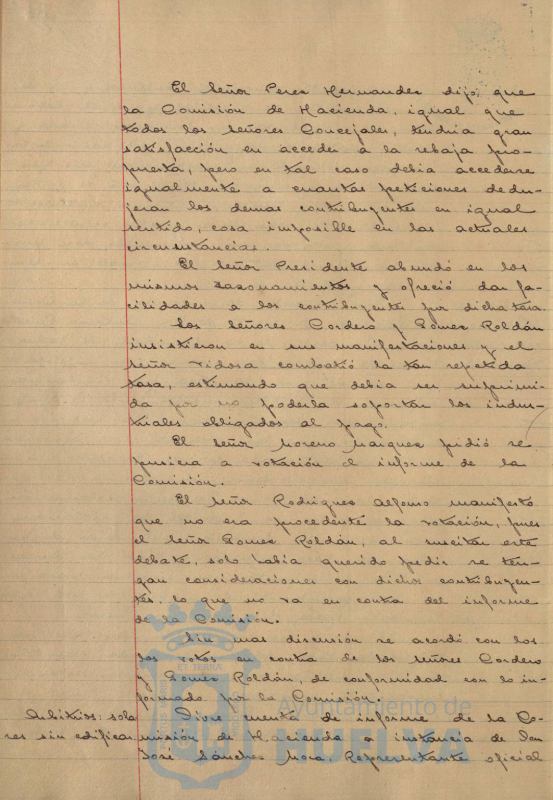 El Señor Perez Hernandez dijo, que
la Comisión de Hacienda, igual que
todos los Señores Concejales, tendria gran
satisfacción en acceder a la rebaja pro-
puesta, pero en tal caso debia accederse
igualmente a cuantas peticiones dedu-
jeran los demas contribuyentes en igual
sentido, cosa imposible en las actuales
circunstancias.
El Señor Presidente abundó en los
mismos razonamientos y ofreció dar fa-
cilidades a los contribuyentes por dicha tasa.
Los Señores Cordero y Gomez Roldán
insistieron en sus manifestaciones y el
Señor Vidosa combatió la tan repetida
tasa, estimando que debia ser suprimi-
da por no poderla soportar los indus-
triales obligados al pago.
El Señor Moreno Marquez pidió se
pusiera a votación el informe de la
Comisión.
El Señor Rodriguez Alfonso manifestó
que no era procedente la votación, pues
el Señor Gomez Roldán, al suscitar este
debate, solo habia querido pedir se ten-
gan consideraciones con dichos contribuyen-
tes, lo que no va en contra del informe
de la Comisión.
Sin mas discusión se acordó con los
los votos en contra de los señores Cordero
y Gomez Roldán, de conformidad con lo in-
formado por la Comisión.
Arbitrios: sola
res sin edificar
Dióse cuenta de informe de la Co-
misión de Hacienda a instancia de Don
José Sánchez Mora, Representante oficial
ET TERRA
Ayuntamiento de
HUELVA